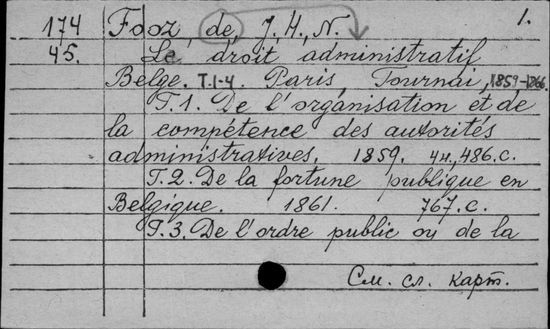 174 Fooz, de, J. H. N. 1.
45. Le droit administratif
Belge. T.1-4. Paris, Tournai, 1859-1866.
T.1. De l'organisation et de
la compétence des autorités
administratives. 1859. 4н., 486.c.
T.2. De la fortune publique en
Belgique. 1861. 767.c.
T.3. De l'ordre public ou de la
См. сл. карт.